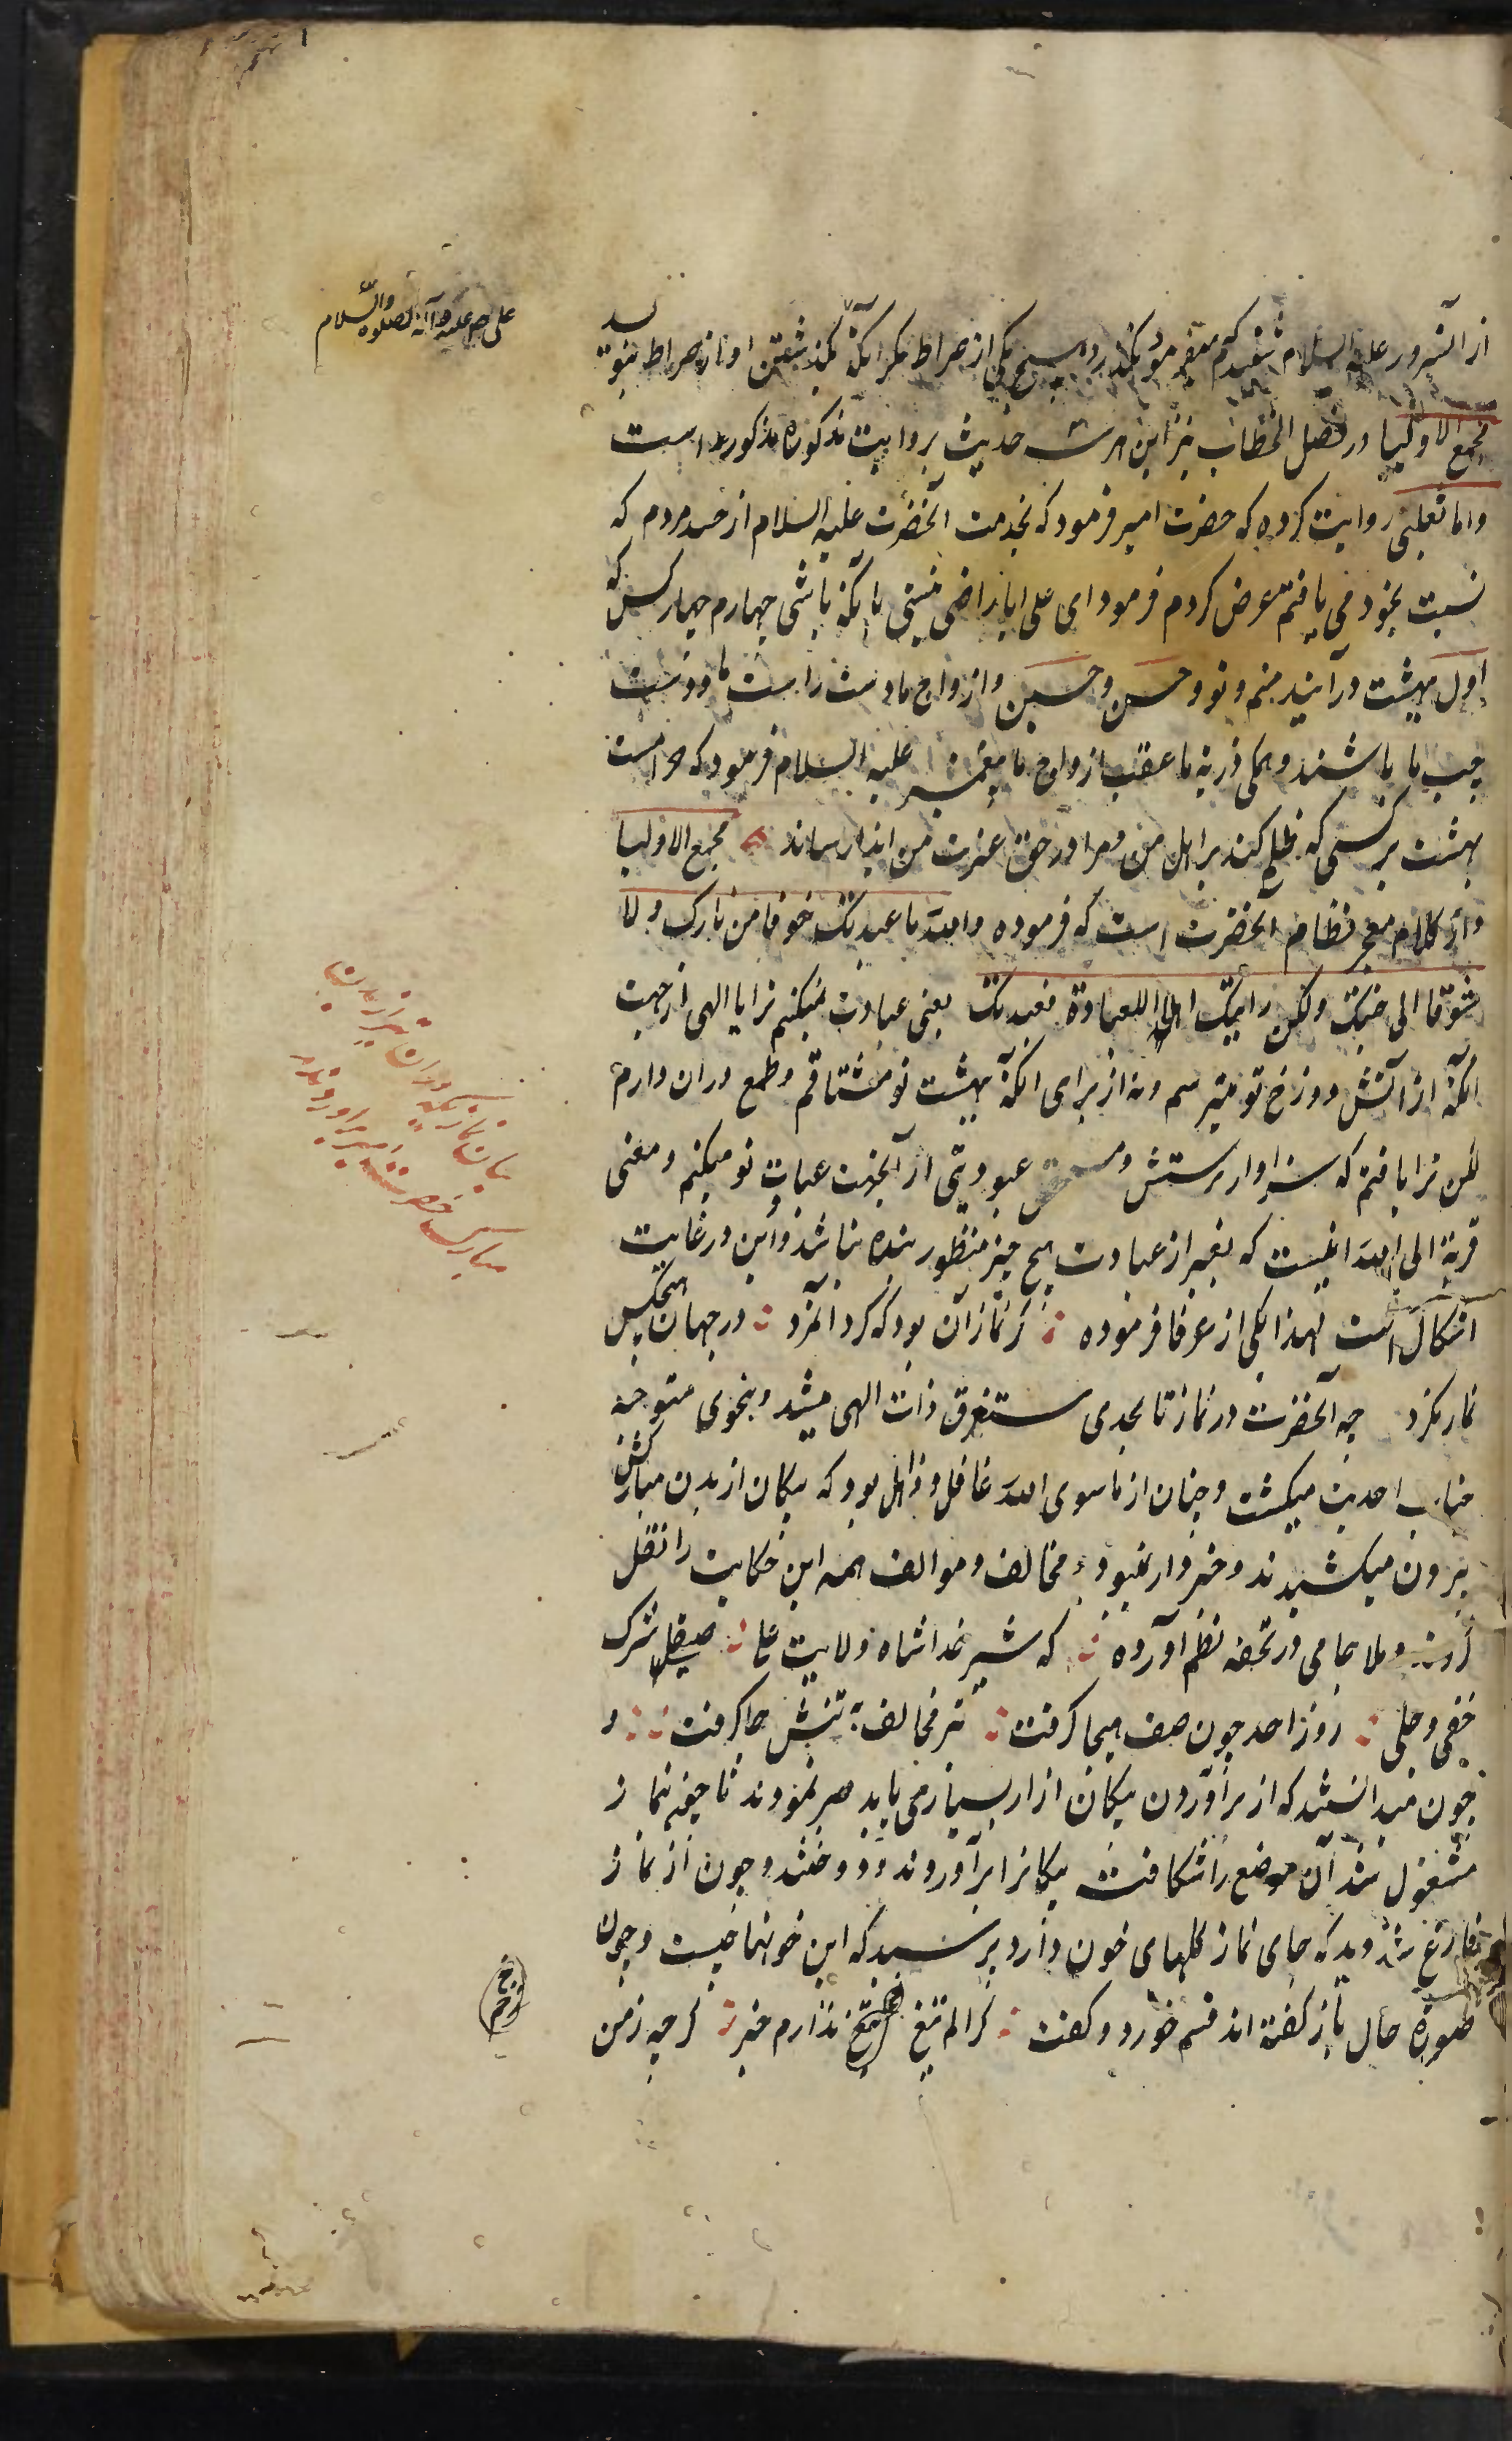 از آنسرور علیه السلام شنیدم که میفرمود نگذرد هیچ یکی از صراط مکر آنکه گذشتن او از صراط بنویسد
علی علیه و آله الصلوه والسلام
مجمع الاولیا در فصل الخطاب نیز این هر سه حدیث بروایت مذکوره مذکور است
و اما ثعلبی روایت کرده که حضرت امیر فرمود که بخدمت آنحضرت علیه السلام از حسد مردم که
نسبت بخود می یافتم عرض کردم فرمود ای علی ایا راضی نیستی بآنکه باشی چهارم چهار کس که
اول ببهشت در آیند منم و تو و حسن و حسین و ازواج ما دست راست ما و دست
چپ ما باشند و همکی ذریة ما عقب ازواج ما پیغمبر علیه السلام فرمود که حرامست
بهشت بر کسی که ظلم کند بر اهل من و مرا در حق عترت من ایذا رساند مجمع الاولیا
و از کلام معجز نظام آنحضرت است که فرموده والله ما عبدتک خوفا من نارک و لا
شوقا الی جنتک ولکن رایتک اهلا للعبادة فعبدتک یعنی عبادت نمیکنم ترا یا الهی از جهت
آنکه از آتش دوزخ تو میترسم و نه از برای آنکه ببهشت تو مشتاقم و طمع دران دارم
لکن ترا یافتم که سزاوار پرستش و مستحق عبودیتی از آنجهت عبادت تو میکنم و معنی
قربة الی الله اینست که بغیر از عبادت هیچ چیز منظور بنده نباشد و این در غایت
اشکال است لهذا یکی از عرفا فرموده کر نماز آن بود که کرد آنمرد در جهان هیچکس
نماز نکرد چه آنحضرت در نماز تا بحدی مستغرق ذات الهی میشد و بنحوی متوجه
جناب احدیت میکشت و چنان از ماسوی الله غافل و ذاهل بود که پیکان از بدن مبارکش
بیرون میکشیدند و خبردار نمیبود و مخالف و موالف همه این حکایت را نقل
کرده‌اند و ملا جامی در تحفه نظم آورده که شیر خدا شاه ولایت علی صیقل شرک
خفی و جلی روز احد چون صف هیجا کرفت تیر مخالف به تنش جا کرفت و
چون میدانستند که از برآوردن پیکان ازار بسیار می یابد صبر نمودند تا چون بنماز
مشغول شد آن موضع را شکافته پیکانرا برآوردند و دوختند و چون از نماز
فارغ شد دید که جای نماز کلهای خون دارد پرسید که این خونها چیست و چون
صورة حال باز کفته‌اند قسم خورد و کفت کز الم تیغ ندارم خبر کرچه ز من
بیان نماز
مبارک حضرت امیر
زخم